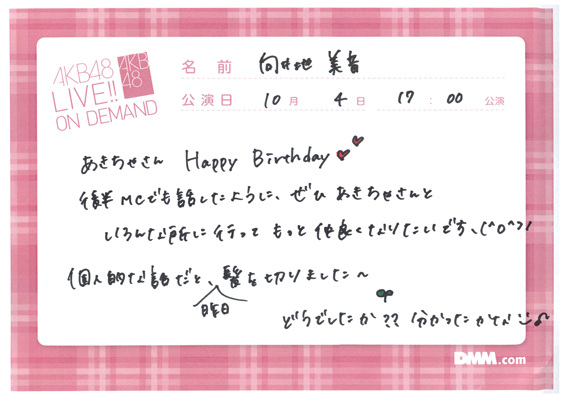 AKB48
LIVE!!
ON DEMAND
AKB
48
名前 向井地 美音
公演日 10月 4日 17:00 公演
あきちゃさん Happy Birthday
後半MCでも話したように、ぜひ あきちゃさんと
いろんな所に行って もっと仲良くなりたいです、(^o^)/
個人的な話だと、髪を切りました〜
昨日
どうでしたか?? 分かったかな
DMM.com